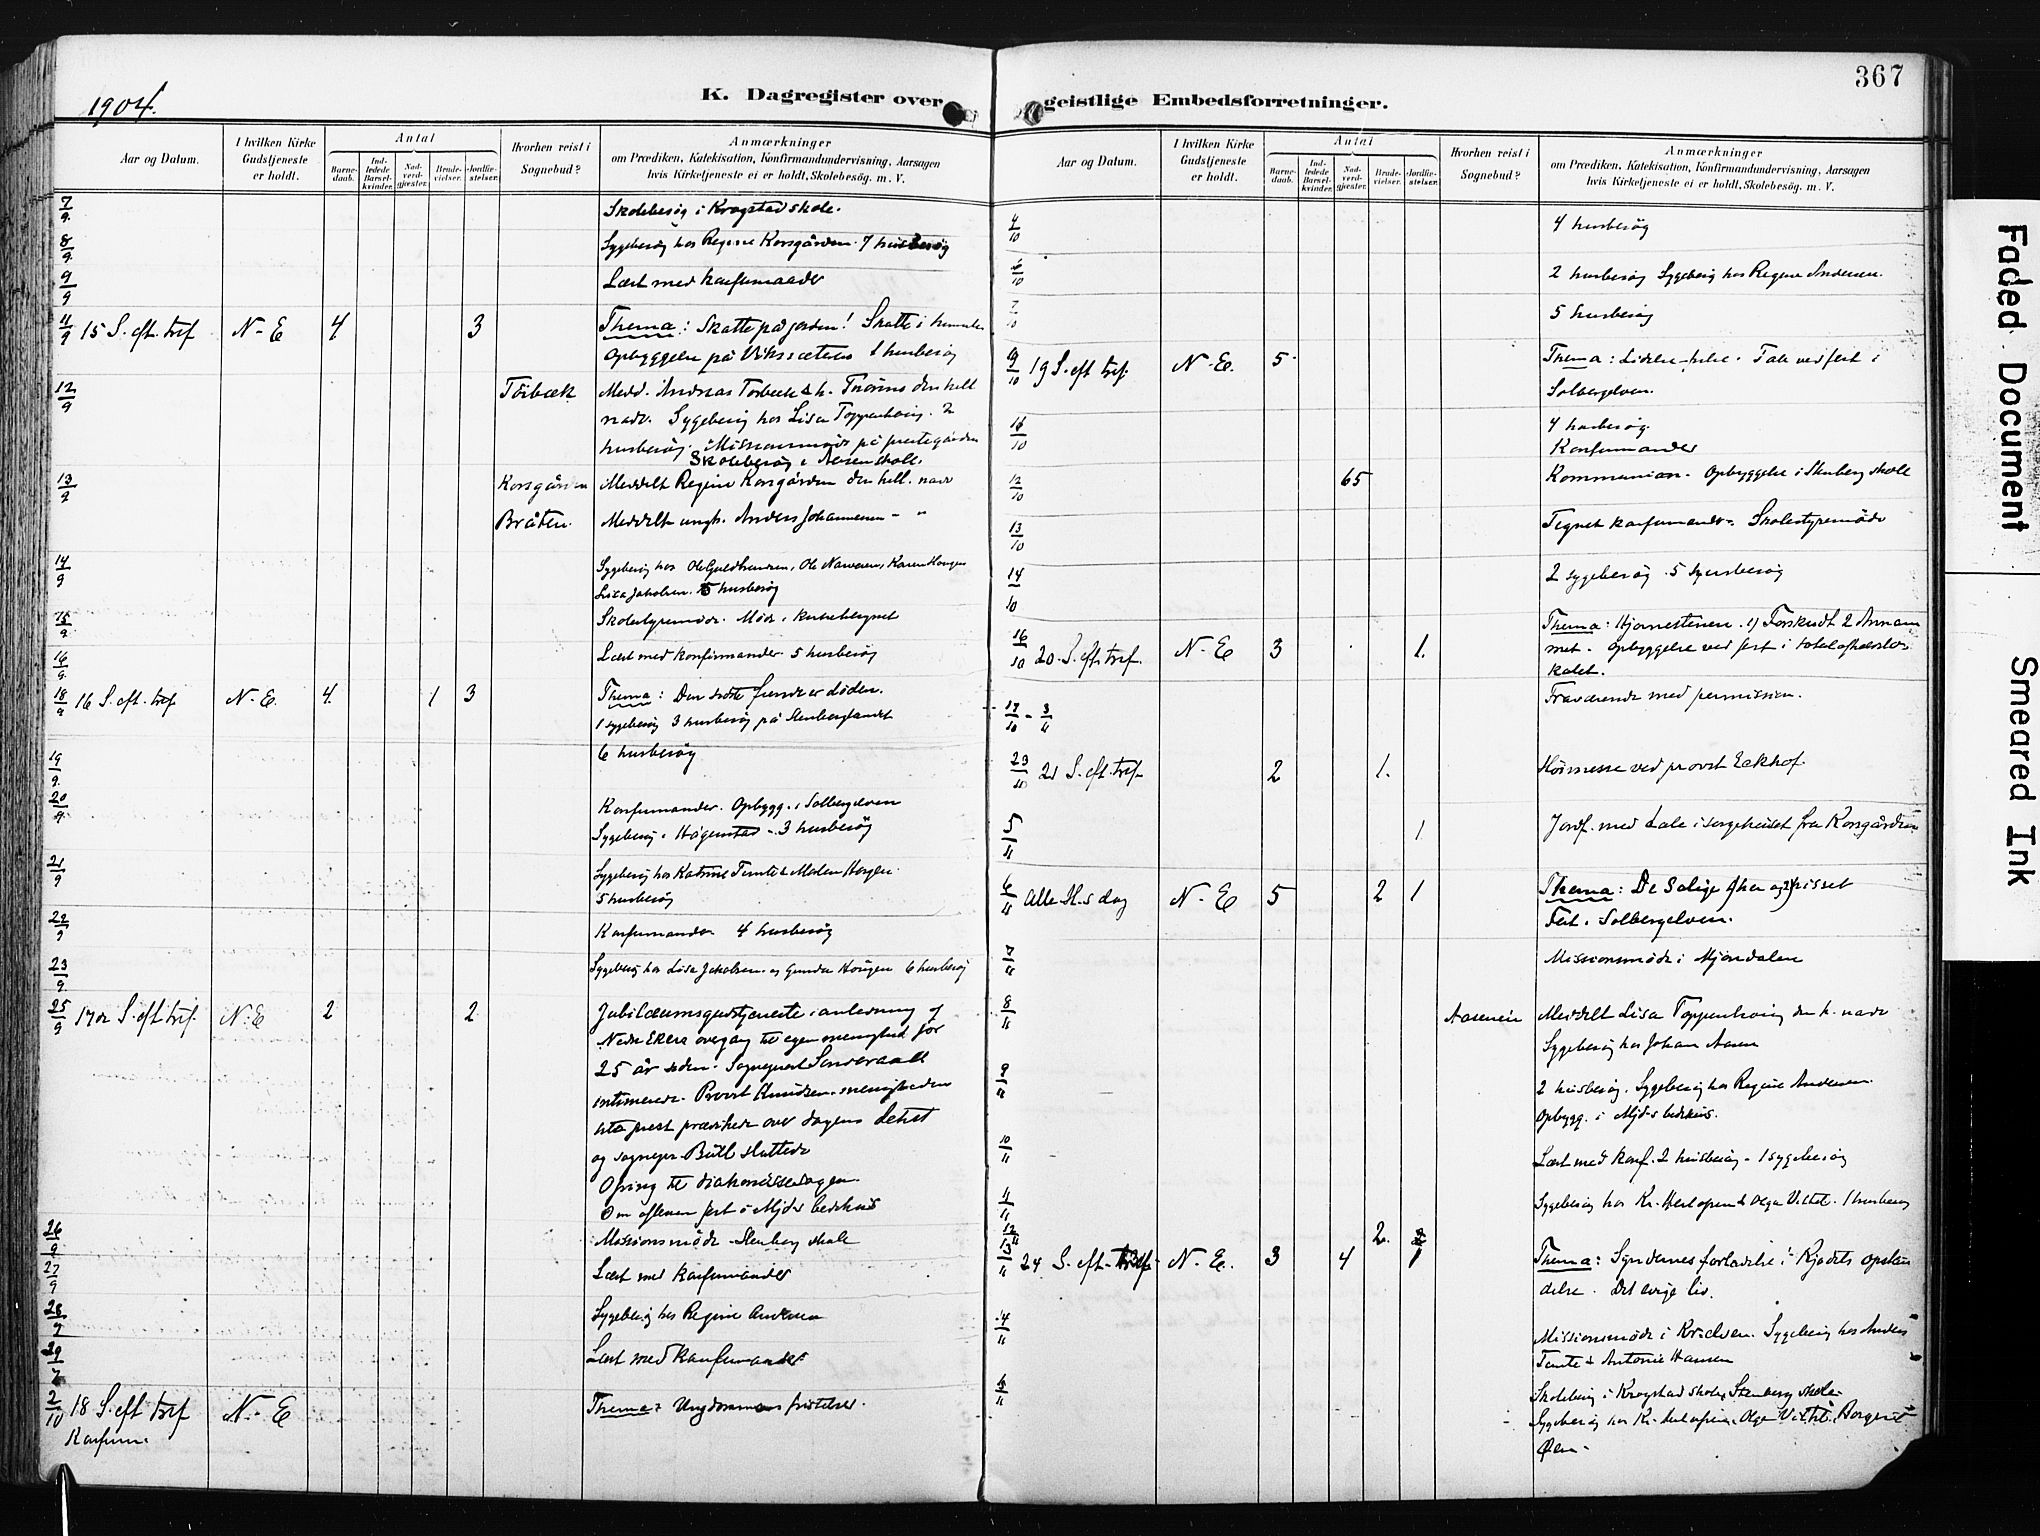 1904.
K. Dagregister over
Aar og Datum.
I hvilken Kirke Gudstjeneste er holdt.
Antal
Barnedaab.
Indledede Barselkvinder.
Nadverdgjester.
Brudevielser.
Jordfæstelser.
Hvorhen reist i Sognebud?
Anmærkninger
om Prædiken, Katekisation, Konfirmandundervisning, Aarsagen
hvis Kirketjeneste ei er holdt, Skolebesøg. m. V.
7/9. Skolebesøg i Krogstad skole.
8/9. Sygebesøg hos Regine Korsgården. 7 husbesøg
9/9 Læst med konfirmander
11/9 15 S. eft. tref N-E 4 3 Thema: Skatte på jorden! Skatte i himmelen
Opbyggelse på 1 husbesøg
12/9 Törbæk Medd. Andreas Torbæk & h. den hell
nadv. Sygebesøg hos Lisa Toppenhoug. 2
husbesøg. Missionsmöde på prestegården
Skolebesøg i Aasen skole.
13/9 Korsgården Meddelt Regine Korsgården den hell. nadv
Bråten. Meddelt ungk. Anders Johannesen - "
14/9 Sygebesøg hos Ole Guldbrandsen, Ole Narverud, Karen Hougen
Lisa Jakobsen. 5 husbesøg
15/9 Skolestyremöde. Möde i
16/9. Læst med konfirmander 5 husbesøg
18/9 16 S. eft. tref N-E. 4. 1 3 Thema: Den sidste fiende er döden.
1 sygebesøg 3 husbesøg på Stenberglandet
19/9. 6 husbesøg
20/9. Konfirmander. Opbygg. i Solbergelven
Sygebesøg i Hagenstad - 3 husbesøg
21/9 Sygebesøg hos Katrine Temte & Maden Horgen.
5 husbesøg
22/9 Konfirmander 4 husbesøg
23/9. Sygebesøg hos Lisa Jakobsen og Gunda Hougen 6 husbesøg
25/9 17de S. eft. tref. N.E 2 2 Jubilæumsgudstjeneste i anledning af
Nedre Ekers overgang til egen menighed for
25 år siden. Sogneprest
intimerede. Provst Knudsen, menighedens
prest prædikede over dagens tekst
og sognepr. Bull sluttede
Ofring til diakonissesagen
Om aftenen fest i Mjds bedehus
26/9 Missionsmöde - Stenberg skole
27/9 Læst med konfirmander
28/9 Sygebesøg hos Regine Andersen
29/9 Læst med konfirmander
2/10 18 S. eft tref N-E Thema: Ungdommens fristelser.
Konfirm.
367
geistlige Embedsforretninger.
Aar og Datum.
I hvilken Kirke Gudstjeneste er holdt.
Antal
Barnedaab.
Indledede Barselkvinder.
Nadverdgjester.
Brudevielser.
Jordfæstelser.
Hvorhen reist i Sognebud?
Anmærkninger
om Prædiken, Katekisation, Konfirmandundervisning, Aarsagen
hvis Kirketjeneste ei er holdt, Skolebesøg. m. V.
4/10 4 husbesøg
6/10 2 husbesøg Sygebesøg hos Regine Andersen.
7/10 5 husbesøg
9/10 19 S. eft tref. N-E. 5 Thema: Tale ved fest i
Solbergelven.
/10 4 husbesøg.
Konfirmander
12/10 65 Kommunion. Opbyggelse i Stenberg skole
13/10 Tegnet konfirmander. Skolestyremöde
14/10 2 sygebesøg 5 husbesøg
16/10 20. S. eft. tref. N-E 3 1. Thema: Hjørnestenen. 1) Forskudt 2
met. Opbyggelse ved fest i totalafholdslo
kalet.
17/10 - 3/11 Fraværende med permission.
23/10 21 S. eft. tref. 2 1. Höimesse ved provst Eckhof.
5/11 1 Jordf. med tale i sørgehuset fra Korsgården
6/11 Alle H-s dag N-E 5 2 1 Thema: De Salige 1) her og 2) hisset
Fest i Solbergelven.
7/11 Missionsmöde i Mjöndalen
8/11 Aaseneie Meddelt Lisa Toppenhoug den h. nadv
Sygebesøg hos Johan Aasen
9/11 2 husbesøg. Sygebesøg hos Regine Andersen.
Opbygg. i Mjds bedehus.
10/11 Læst med konf. 2 husbesøg - 1 sygebesøg
11/11 Sygebesøg hos Kr. & Olga 1 husbesøg
12/11 2.
13/11 24 S. eft. tref. N-E. 3 4 1 Thema: Syndernes forladelse! Kjødets opstan
delse. Det evige liv.
14/11 Missionsmöde i Sygebesøg hos Anders
Temte & Antonie Hansen
/11 Skolebesøg i Krogstad skole, Stenberg skole.
Sygebesøg hos Kr. Olga
Øen.
Faded Document
Smeared Ink